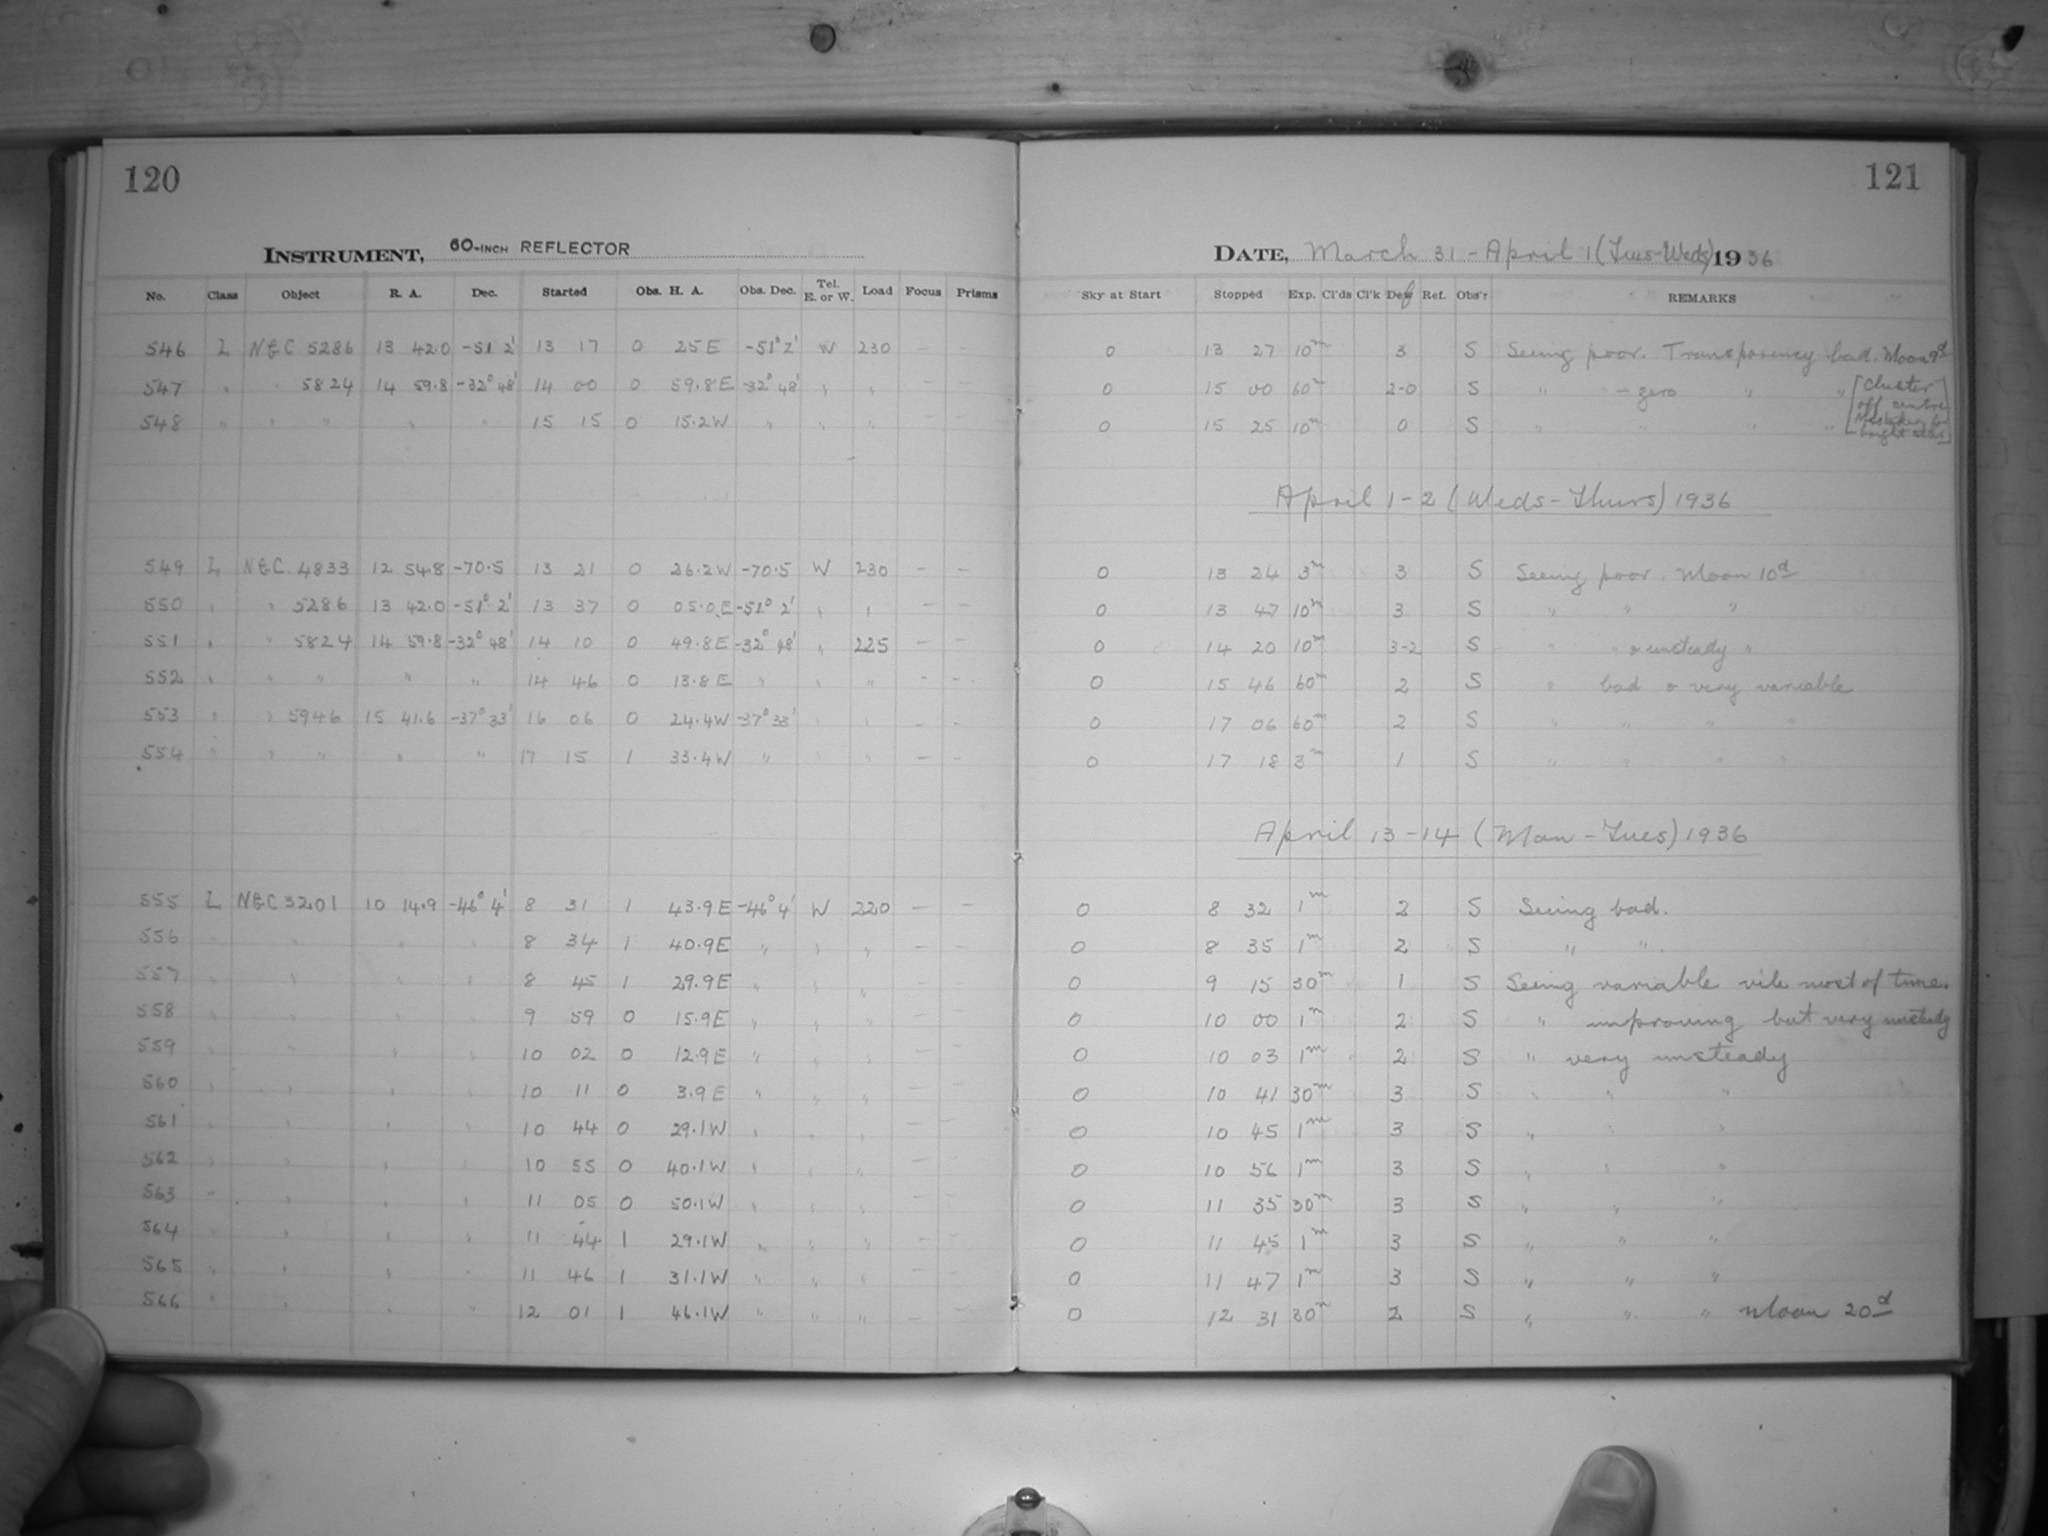 120
INSTRUMENT, 60-INCH REFLECTOR
No. Class Object R. A. Dec. Started Obs. H. A. Obs. Dec. Tel. E. or W. Load Focus Prisms
546 L NGC 5286 13 42.0 -51 2' 13 17 0 25 E -51° 2' W 230 — —
547 " " 5824 14 59.8 -32° 48' 14 00 0 59.8 E -32° 48' " " — —
548 " " " " " 15 15 0 15.2 W " " " — —
549 L NGC. 4833 12 54.8 -70.5 13 21 0 26.2 W -70.5 W 230 — —
550 " " 5286 13 42.0 -51° 2' 13 37 0 05.0 E -51° 2' " " — —
551 " " 5824 14 59.8 -32° 48' 14 10 0 49.8 E -32° 48' " 225 — —
552 " " " " " 14 46 0 13.8 E " " " — —
553 " " 5946 15 41.6 -37° 33' 16 06 0 24.4 W -37° 33' " " — —
554 " " " " " 17 15 1 33.4 W " " " — —
555 L NGC 3201 10 14.9 -46° 4' 8 31 1 43.9 E -46° 4' W 220 — —
556 " " " " 8 34 1 40.9 E " " " — —
557 " " " " 8 45 1 29.9 E " " " — —
558 " " " " 9 59 0 15.9 E " " " — —
559 " " " " 10 02 0 12.9 E " " " — —
560 " " " " 10 11 0 3.9 E " " " — —
561 " " " " 10 44 0 29.1 W " " " — —
562 " " " " 10 55 0 40.1 W " " " — —
563 " " " " 11 05 0 50.1 W " " " — —
564 " " " " 11 44 1 29.1 W " " " — —
565 " " " " 11 46 1 31.1 W " " " — —
566 " " " " 12 01 1 46.1 W " " " — —
121
DATE, March 31 - April 1 (Tues-Weds) 1936
Sky at Start Stopped Exp. Cl'ds Cl'k Def Ref. Obs'r REMARKS
0 13 27 10m 3 S Seeing poor. Transparency bad. Moon 9d
0 15 00 60m 2-0 S " - zero " " [Cluster off centre
0 15 25 10m 0 S " " " " bright star]
April 1-2 (Weds-Thurs) 1936
0 13 24 3m 3 S Seeing poor. Moon 10d
0 13 47 10m 3 S " " "
0 14 20 10m 3-2 S " " & unsteady "
0 15 46 60m 2 S " bad & very variable
0 17 06 60m 2 S " " " "
0 17 18 3m 1 S " " " "
April 13-14 (Mon-Tues) 1936
0 8 32 1m 2 S Seeing bad.
0 8 35 1m 2 S " ".
0 9 15 30m 1 S Seeing variable vile most of time.
0 10 00 1m 2 S " improving but very unsteady
0 10 03 1m 2 S " very unsteady
0 10 41 30m 3 S " " "
0 10 45 1m 3 S " " "
0 10 56 1m 3 S " " "
0 11 35 30m 3 S " " "
0 11 45 1m 3 S " " "
0 11 47 1m 3 S " " "
0 12 31 30m 2 S " " " Moon 20d